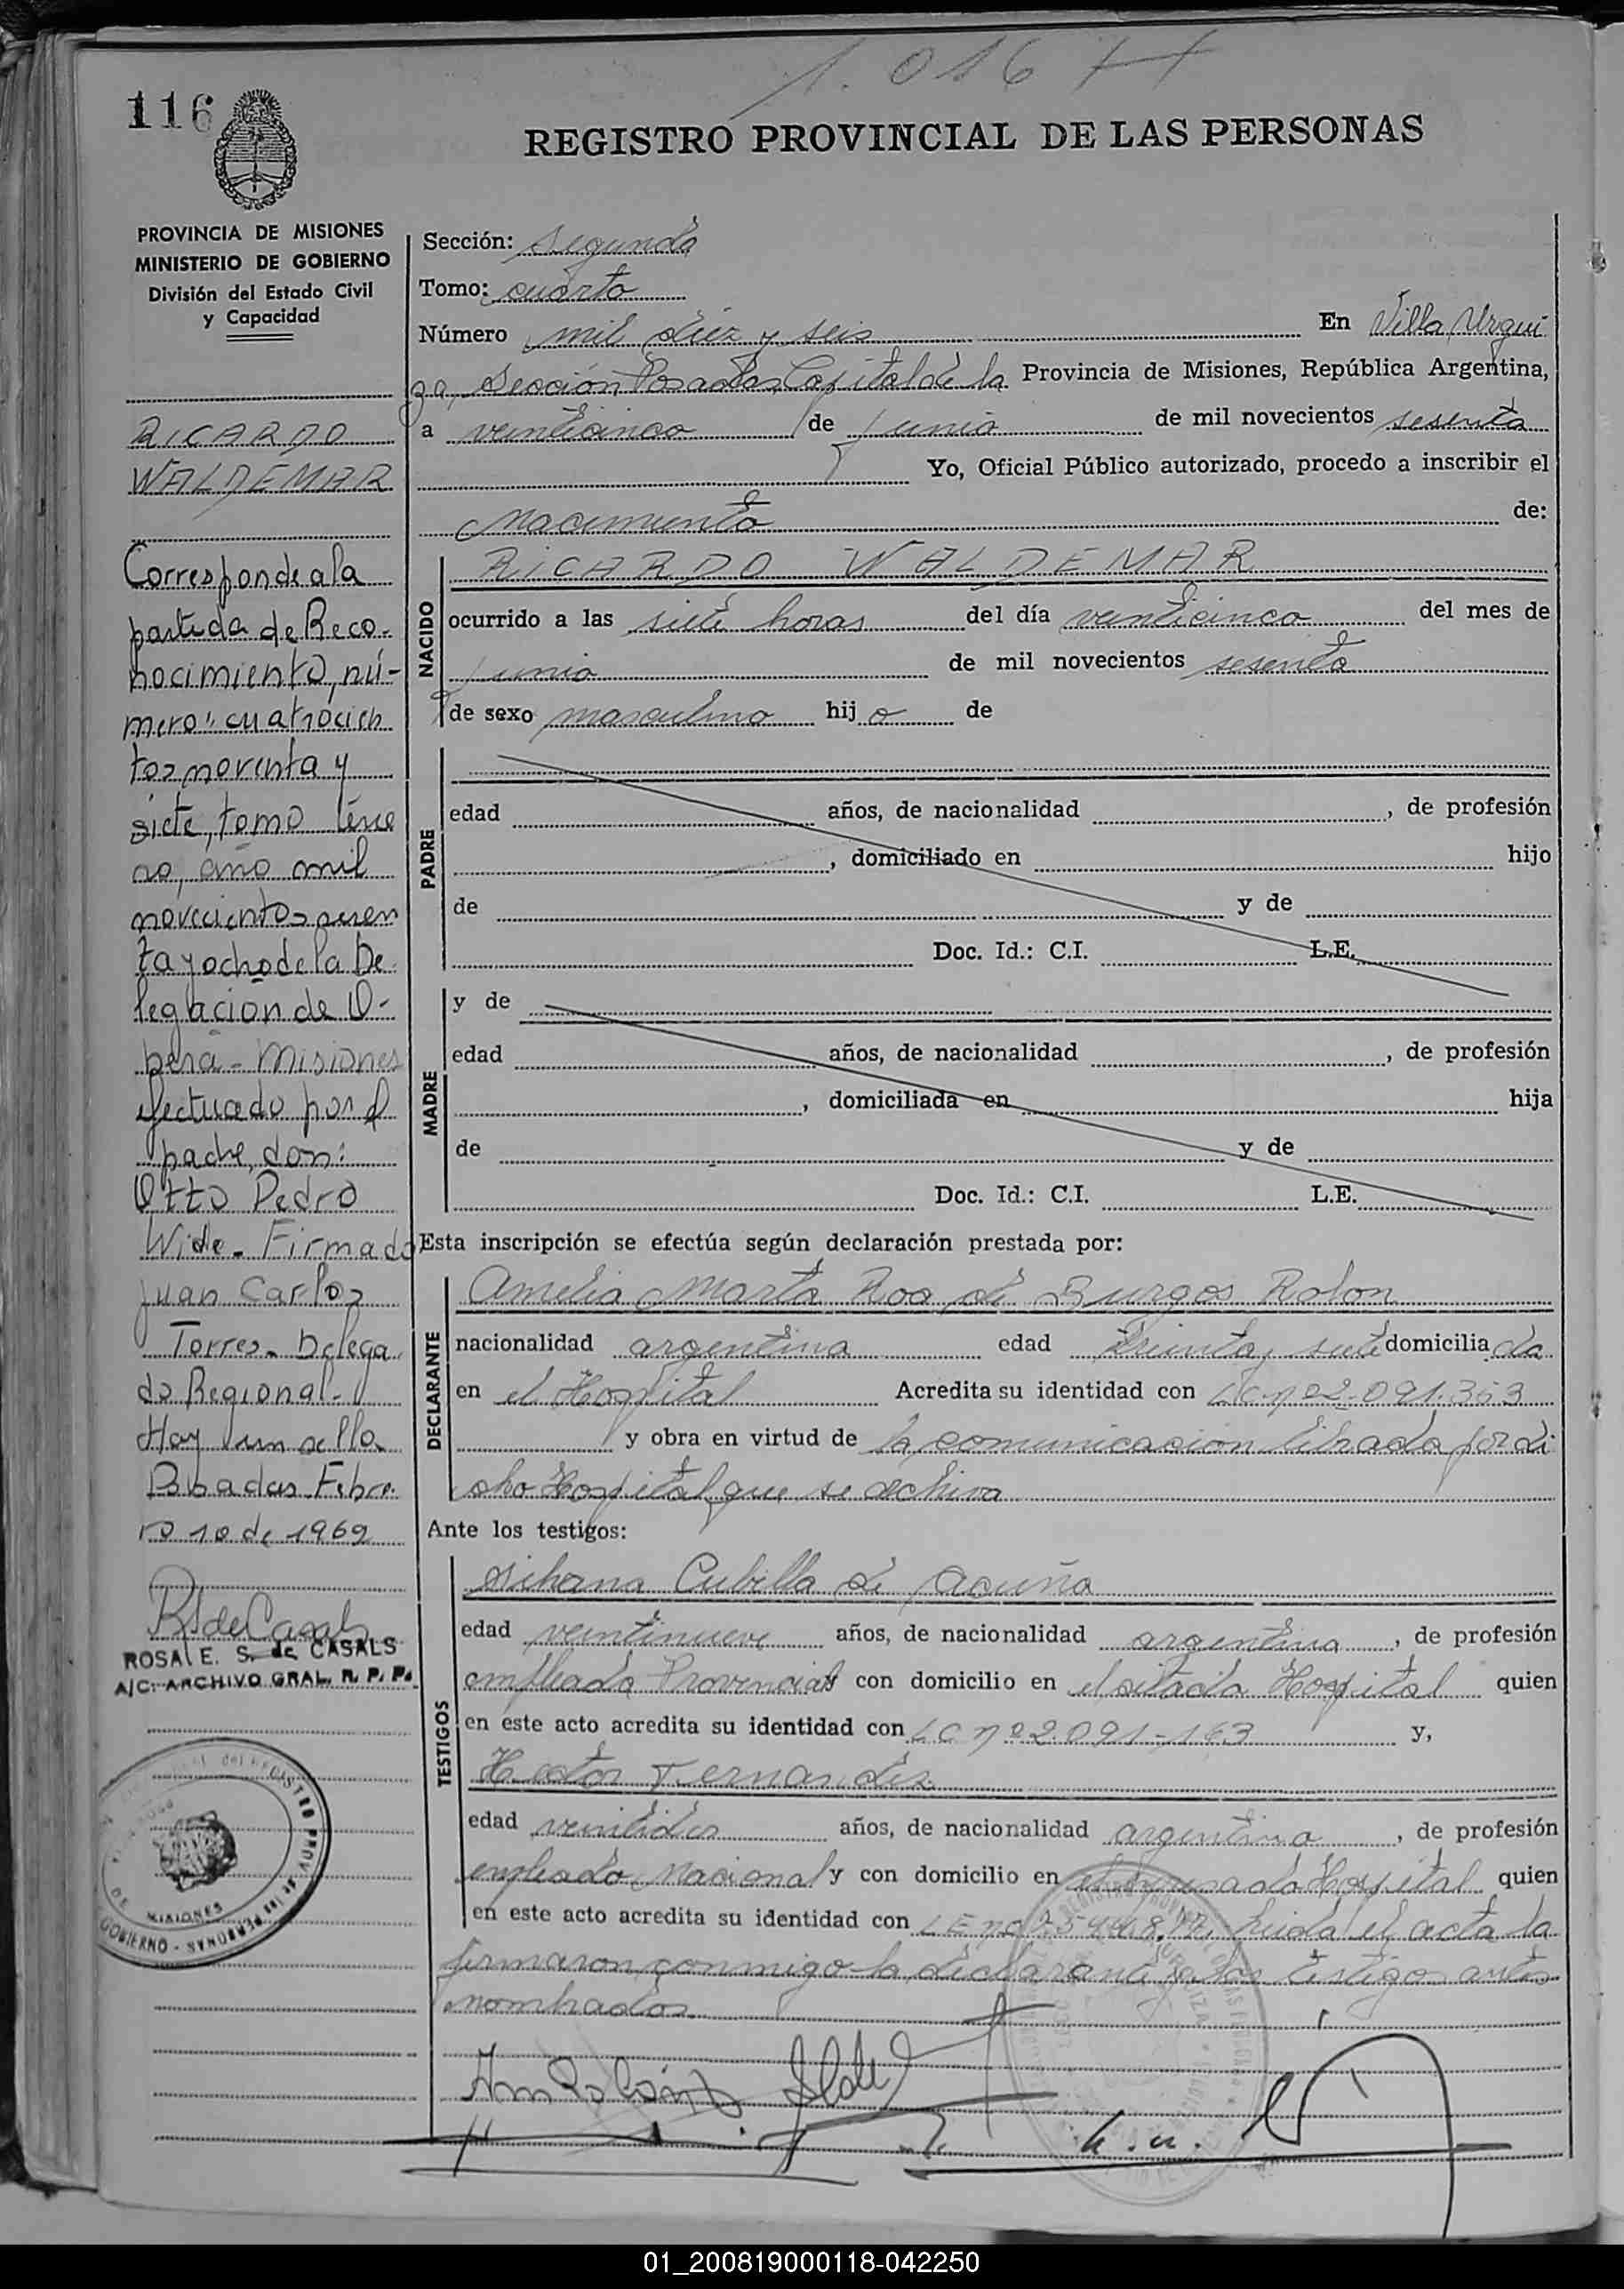 1.016
116
REGISTRO PROVINCIAL DE LAS PERSONAS
PROVINCIA DE MISIONES
MINISTERIO DE GOBIERNO
División del Estado Civil
y Capacidad
RICARDO
WALDEMAR
Corresponde a la
partida de Reco-
nocimiento, nú-
mero: cuatrocien
tos noventa y
siete, tomo terce
ro, año mil
novecientos sesen
ta y ocho de la De
legación de O-
berá - Misiones
efectuado por el
padre, don:
Otto Pedro
Wide - Firmado
Juan Carlos
Torres - Delega
do Regional -
Hay un sello
Posadas Febre
ro 10 de 1969
RSdeCasals
ROSA E. S. de CASALS
A/C. ARCHIVO GRAL. R. P. P.
MISIONES
Sección: Segunda
Tomo: cuarto
Número mil diez y seis En Villa Urqui
za, Sección Posadas Capital de la Provincia de Misiones, República Argentina,
a veinticinco de junio de mil novecientos sesenta
Yo, Oficial Público autorizado, procedo a inscribir el
Nacimiento de:
NACIDO
RICARDO WALDEMAR
ocurrido a las siete horas del día veinticinco del mes de
junio de mil novecientos sesenta
de sexo masculino hijo de
PADRE
edad años, de nacionalidad , de profesión
, domiciliado en hijo
de y de
Doc. Id.: C.I. L.E.
MADRE
y de
edad años, de nacionalidad , de profesión
, domiciliada en hija
de y de
Doc. Id.: C.I. L.E.
Esta inscripción se efectúa según declaración prestada por:
DECLARANTE
Amelia Marta Roa de Burgos Rolon
nacionalidad argentina edad treinta y siete domiciliada
en el Hospital Acredita su identidad con LC nº 2.091.353
y obra en virtud de la comunicacion librada por di
cho Hospital que se archiva
Ante los testigos:
TESTIGOS
Cubilla de Acuña
edad veintinueve años, de nacionalidad argentina, de profesión
empleada Provincial y con domicilio en el citado Hospital quien
en este acto acredita su identidad con LC nº 2.091-163 y,
Hector Fernandez
edad veintidos años, de nacionalidad argentina, de profesión
empleado Nacional y con domicilio en el Hospital quien
en este acto acredita su identidad con LE nº leida el acta la
firmaron conmigo la declarante y los testigos antes
nombrados.
01_200819000118-042250